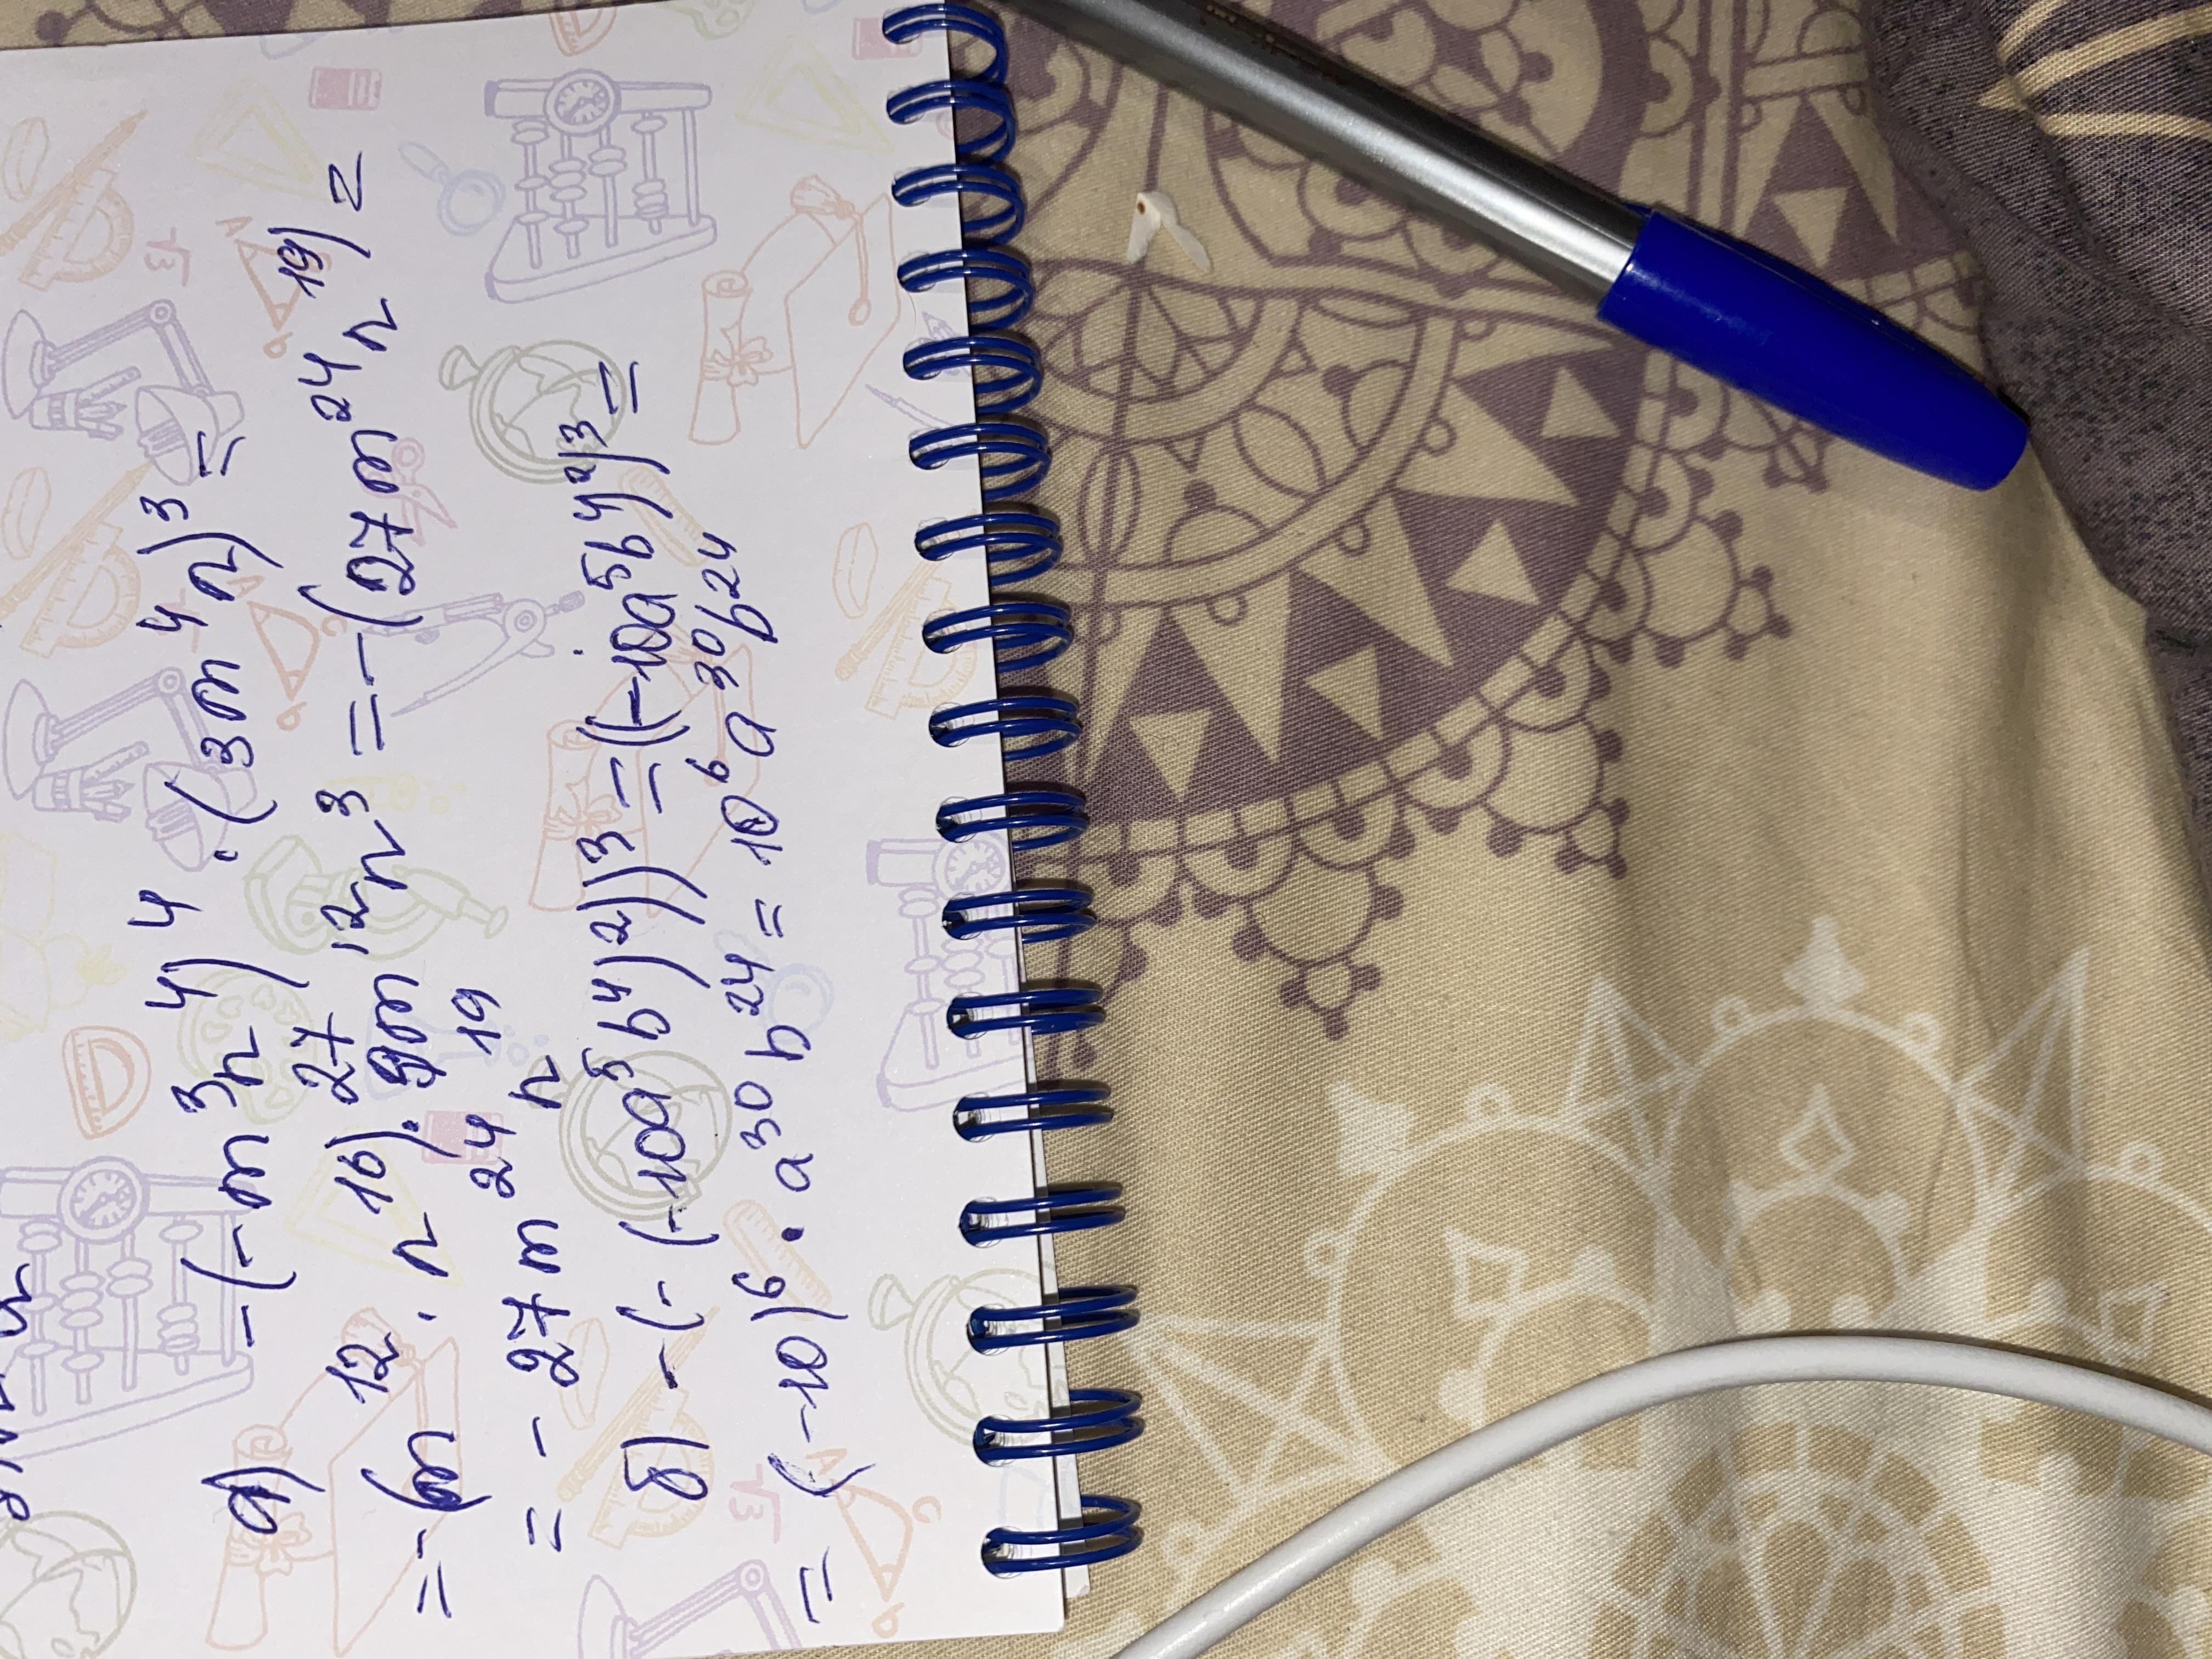 а) -(-m³n⁴)⁴ · (3m⁴n)³ =
= -(m¹² · n¹⁶) · 27m¹²n³ = -(27m²⁴n¹⁹) =
= -27m²⁴n¹⁹
б) -(-(-10a⁵b⁴)²)³ = ((-10a⁵b⁴)²)³ =
= (-10)⁶ · a³⁰b²⁴ = 10⁶a³⁰b²⁴